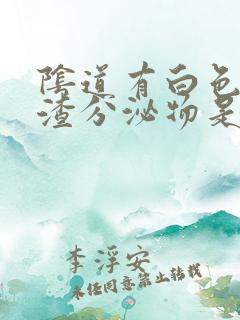 陰道有白色
渣分泌物是
李浮安
未经同意禁止转载